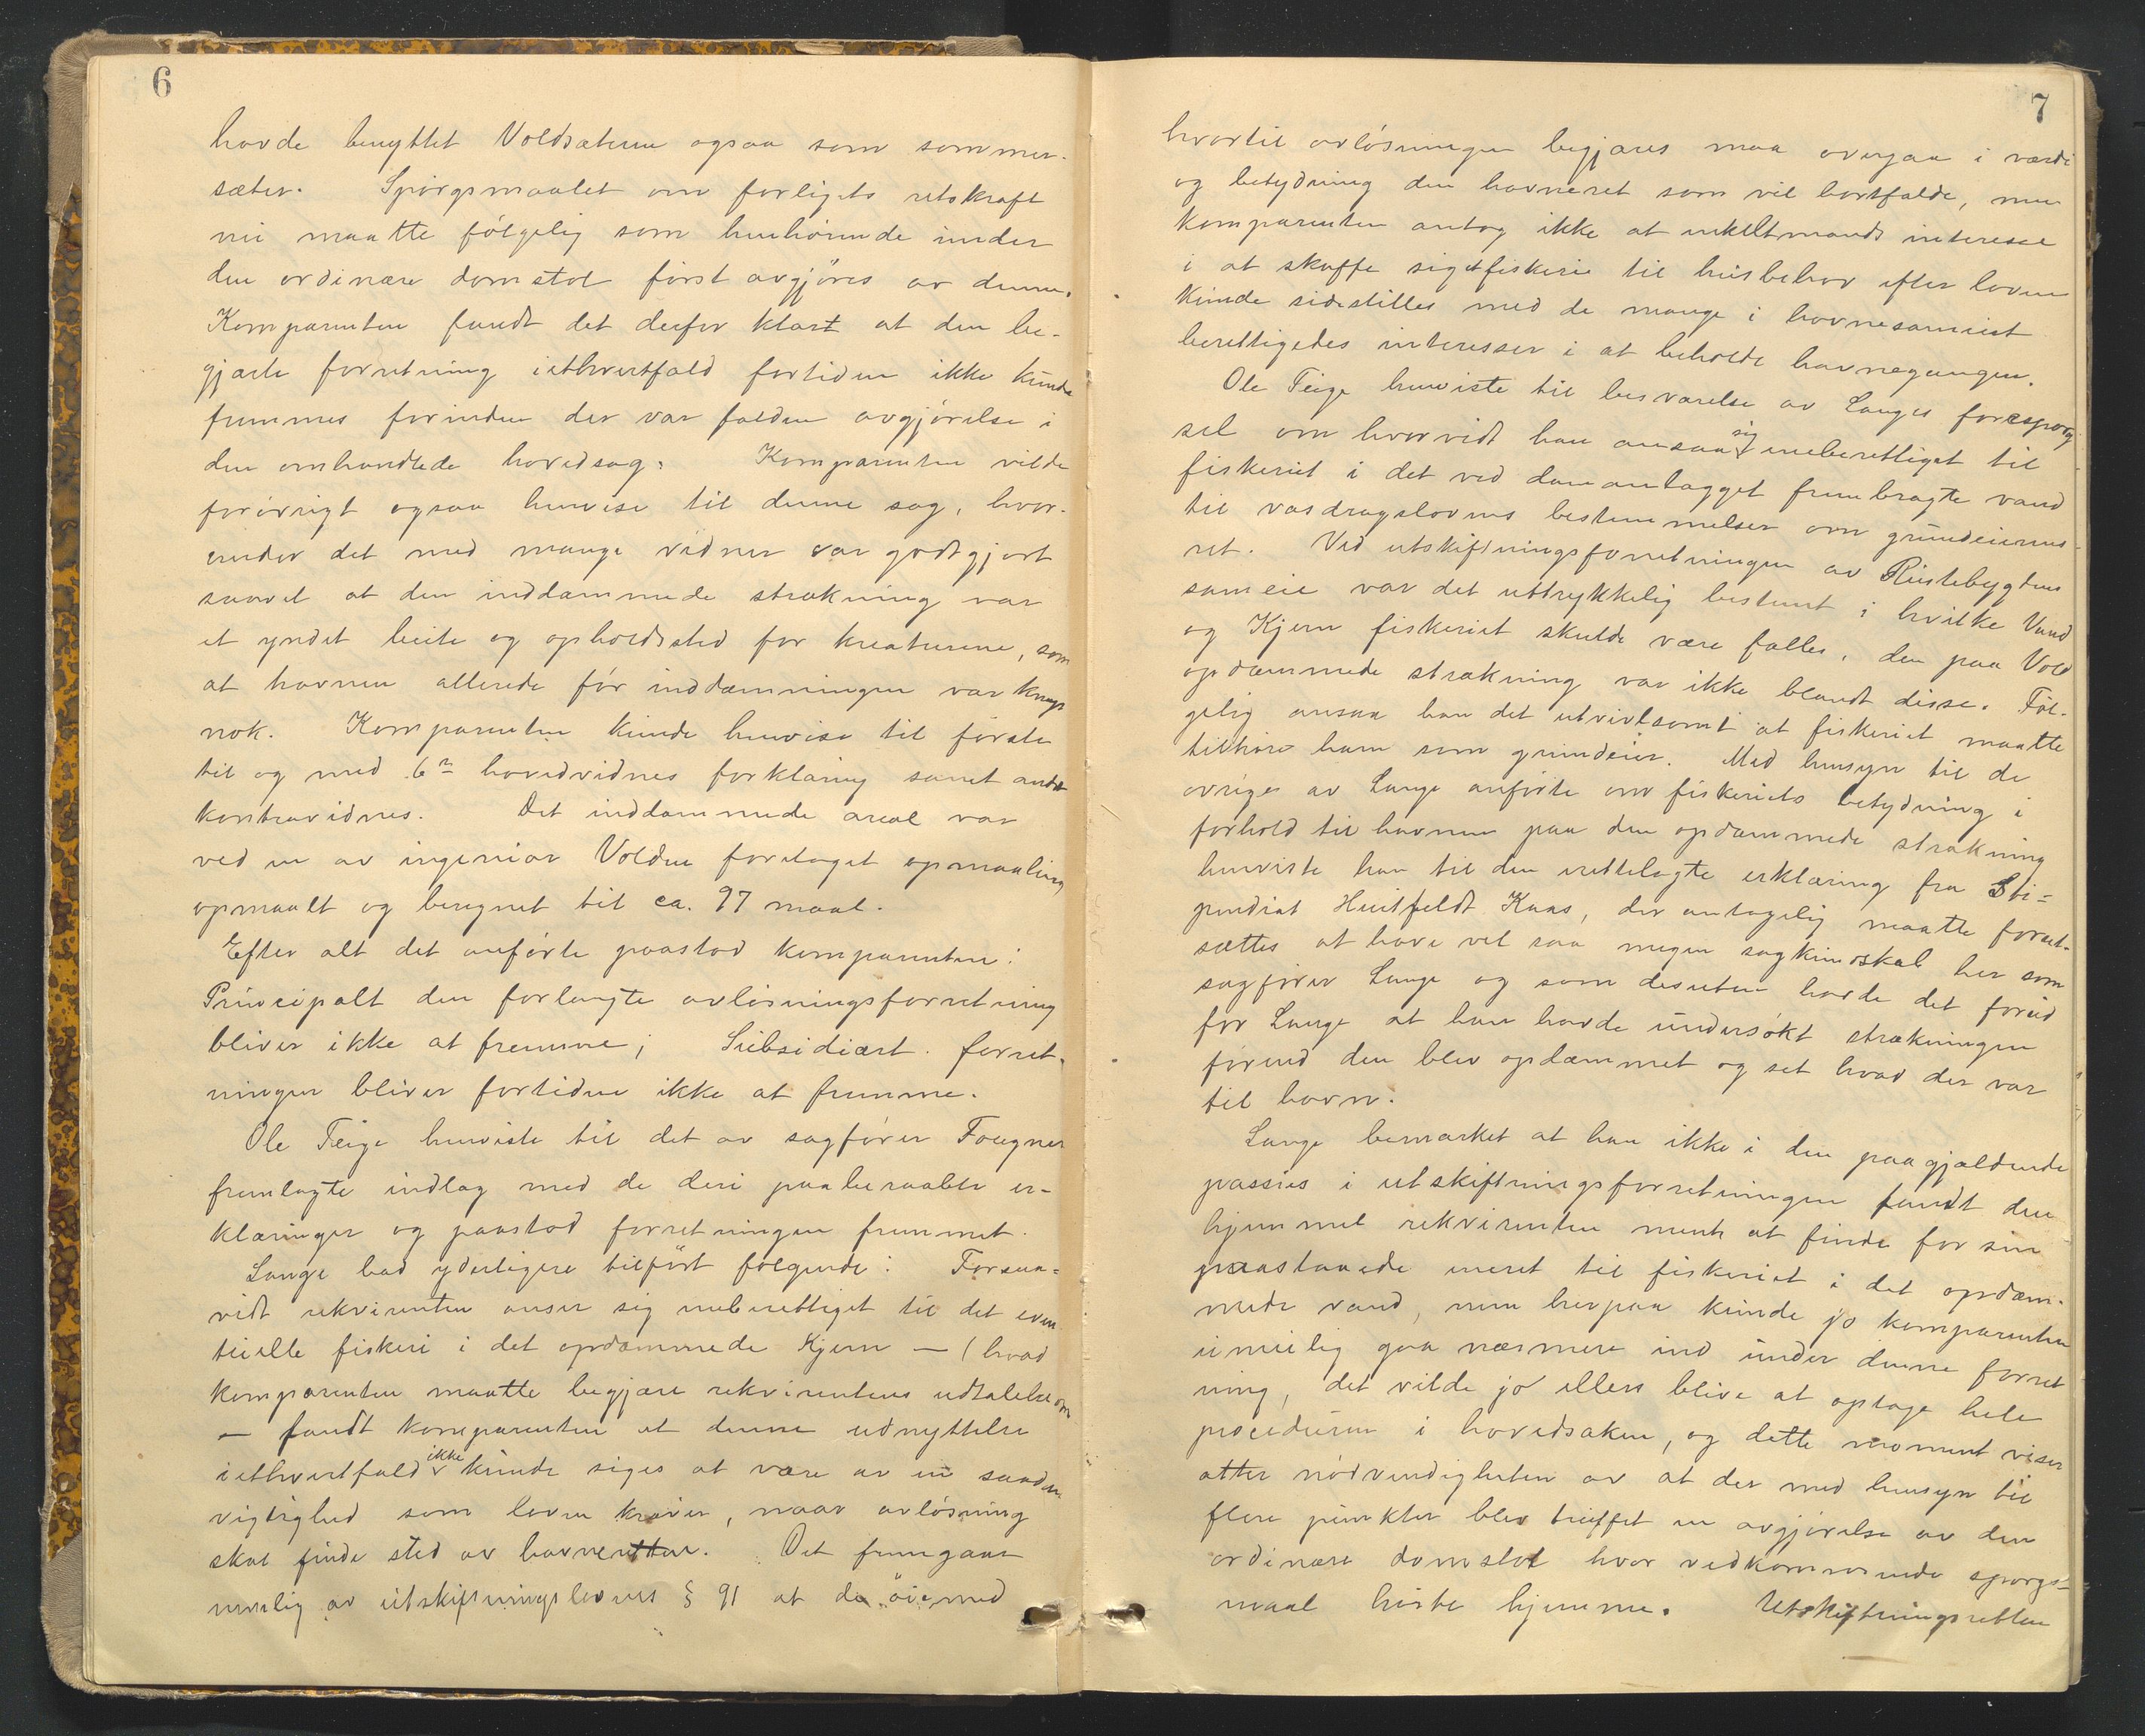 6
havde benyttet Voldsæterne ogsaa som sommer-
sæter. Spörgsmaalet om forligets retskraft
nu maatte fölgelig som henhörende under
den ordinære domstol först avgjöres av denne.
Komparenten fandt det derfor klart at den be-
gjærte forretning iethvertfald fortiden ikke kunde
fremmes forinden der var falden avgjörelse i
den omhandlede hovedsag. Komparenten vilde
forövrigt ogsaa henvise til denne sag, hvor-
under det med mange vidner var godtgjort
saavel at den inddæmmede strækning var
et yndet beite og opholdssted for kreaturene, som
at havnen allerede för inddæmningen var knap
nok. Komparenten kunde henvise til förste
til og med 6te hovedvidnes forklaring samt andet
kontravidnes. Det inddæmmede areal var
ved en av ingeniör Volden foretaget opmaaling
opmaalt og beregnet til ca. 97 maal.
Efter alt det anförte paastod komparenten:
Principalt den forlangte avlösningsforretning
bliver ikke at fremme; Subsidiært. forret-
ningen bliver fortiden ikke at fremme.
Ole Teige henviste til det av sagförer Fougner
fremlagte indlæg med de deri paaberaabte er-
klæringer og paastod forretningen fremmet.
Lange bad yderligere tilfört fölgende: Forsaa-
vidt rekvirenten anser sig eneberettiget til det even-
tuelle fiskeri i det opdæmmede Kjern — (hvad
komparenten maatte begjære rekvirentens udtalelse om
— fandt komparenten at denne udnyttelse
iethvertfald ikke kunde siges at være av en saadan
vigtighed som loven kræver, naar avlösning
skal finde sted av havneretten. Det fremgaar
nemlig av utskiftningslovens § 91 at de öiemed
7
hvortil avlösningen begjæres maa overgaa i værdi
og betydning den havneret som vil bortfalde, men
komparenten antog ikke at enkeltmands interesse
i at skaffe sig et fiskeri til husbehov efter loven
kunde sidestilles med de mange i havnesameiet
berettigedes interesser i at beholde havnegangen.
Ole Teige henviste til besvarelse av Langes forespörg-
sel om hvorvidt han ansaa sig eneberettiget til
fiskeriet i det ved damanlægget frembragte vand
til vasdragslovens bestemmelser om grundeierens
ret. Ved utskiftningsforretningen av Rustebygdens
sameie var det uttrykkelig bestemt i hvilke Vand
og Kjern fiskeriet skulde være fælles, den paa Vold
opdæmmede strækning var ikke blandt disse. Föl-
gelig ansaa han det utvivlsomt at fiskeriet maatte
tilhöre ham som grundeier. Med hensyn til de
övriges av Lange anförte om fiskeriets betydning i
forhold til havnen paa den opdæmmede strækning
henviste han til den irettelagte erklæring fra Sti-
pendiat Huitfeldt Kaas, der antagelig maatte forut-
sættes at have vel saa megen sagkundskab her som
sagförer Lange og som desuten havde det forud
for Lange at han havde undersökt strækningen
förend den blev opdæmmet og set hvad der var
til havn.
Lange bemærket at han ikke i den paagjældende
passus i utskiftningsforretningen fandt den
hjemmel rekvirenten mente at finde for sin
paastaaede eneret til fiskeriet i det opdæm-
mede vand, men herpaa kunde jo komparenten
umulig gaa nærmere ind under denne forret
ning, det vilde jo ellers blive at optage hele
proceduren i hovedsaken, og dette moment viser
atter nödvendigheten av at der med hensyn til
flere punkter blev truffet en avgjörelse av den
ordinære domstol hvor vedkommende spörgs-
maal hörte hjemme. Utskiftningsretten